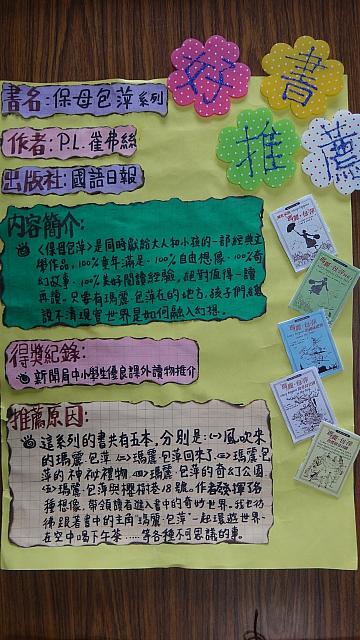 好書推薦
書名:保母包萍系列
作者:P.L.崔弗絲
出版社:國語日報
內容簡介:
《保母包萍》是同時獻給大人和小孩的一部經典文
學作品，100%童年滿足、100%自由想像、100%奇
幻故事、100%美好閱讀經驗，絕對值得一讀
再讀。只要有瑪麗·包萍在的地方，孩子們總
說不清現實世界是如何融入幻想。
得獎紀錄:
新聞局中小學生優良課外讀物推介
推薦原因:
這系列的書共有五本，分別是:㈠風吹來
的瑪麗·包萍 ㈡瑪麗·包萍回來了 ㈢瑪麗·包
萍的神祕禮物 ㈣瑪麗·包萍的奇幻公園
㈤瑪麗·包萍與櫻桃巷18號。作者發揮了各
種想像，帶領讀者進入書中的奇妙世界。我也彷
彿跟著書中的主角"瑪麗·包萍"一起環遊世界、
在空中喝下午茶……等各種不可思議的事。
瑪麗·包萍
瑪麗·包萍
瑪麗·包萍
瑪麗·包萍
瑪麗·包萍